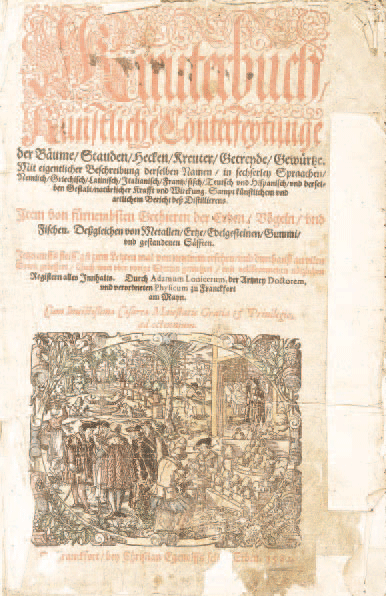 Kreuterbuch/
Künstliche Conterfeytunge
der Bäume/Stauden/Hecken/Kreuter/Getreyde/Gewürtze.
Mit eigentlicher Beschreibung derselben Namen/ in sechserley Spraachen/
Nemlich/Griechisch/Lateinisch/Italiänisch/Frantzösisch/Teutsch vnd Hispanisch/vnd dersel-
ben Gestalt/natürlicher Krafft vnd Wirckung. Sampt künstlichem vnd
artlichem Bericht deß Distillierens.
Item von fürnembsten Gethieren der Erden/ Vögeln/ vnd
Fischen. Deßgleichen von Metallen/Ertze/Edelgesteinen/Gummi/
vnd gestandenen Säfften.
Jetzund auffs
Registern alles Innhalts. Durch Adamum Lonicerum, der Artzney Doctorem,
vnd verordneten Physicum zu Franckfort
am Mayn.
Cum Caesareae Maiestatis Gratia & Privilegio,
ad
Franckfort/ bey Christian Egenolffs